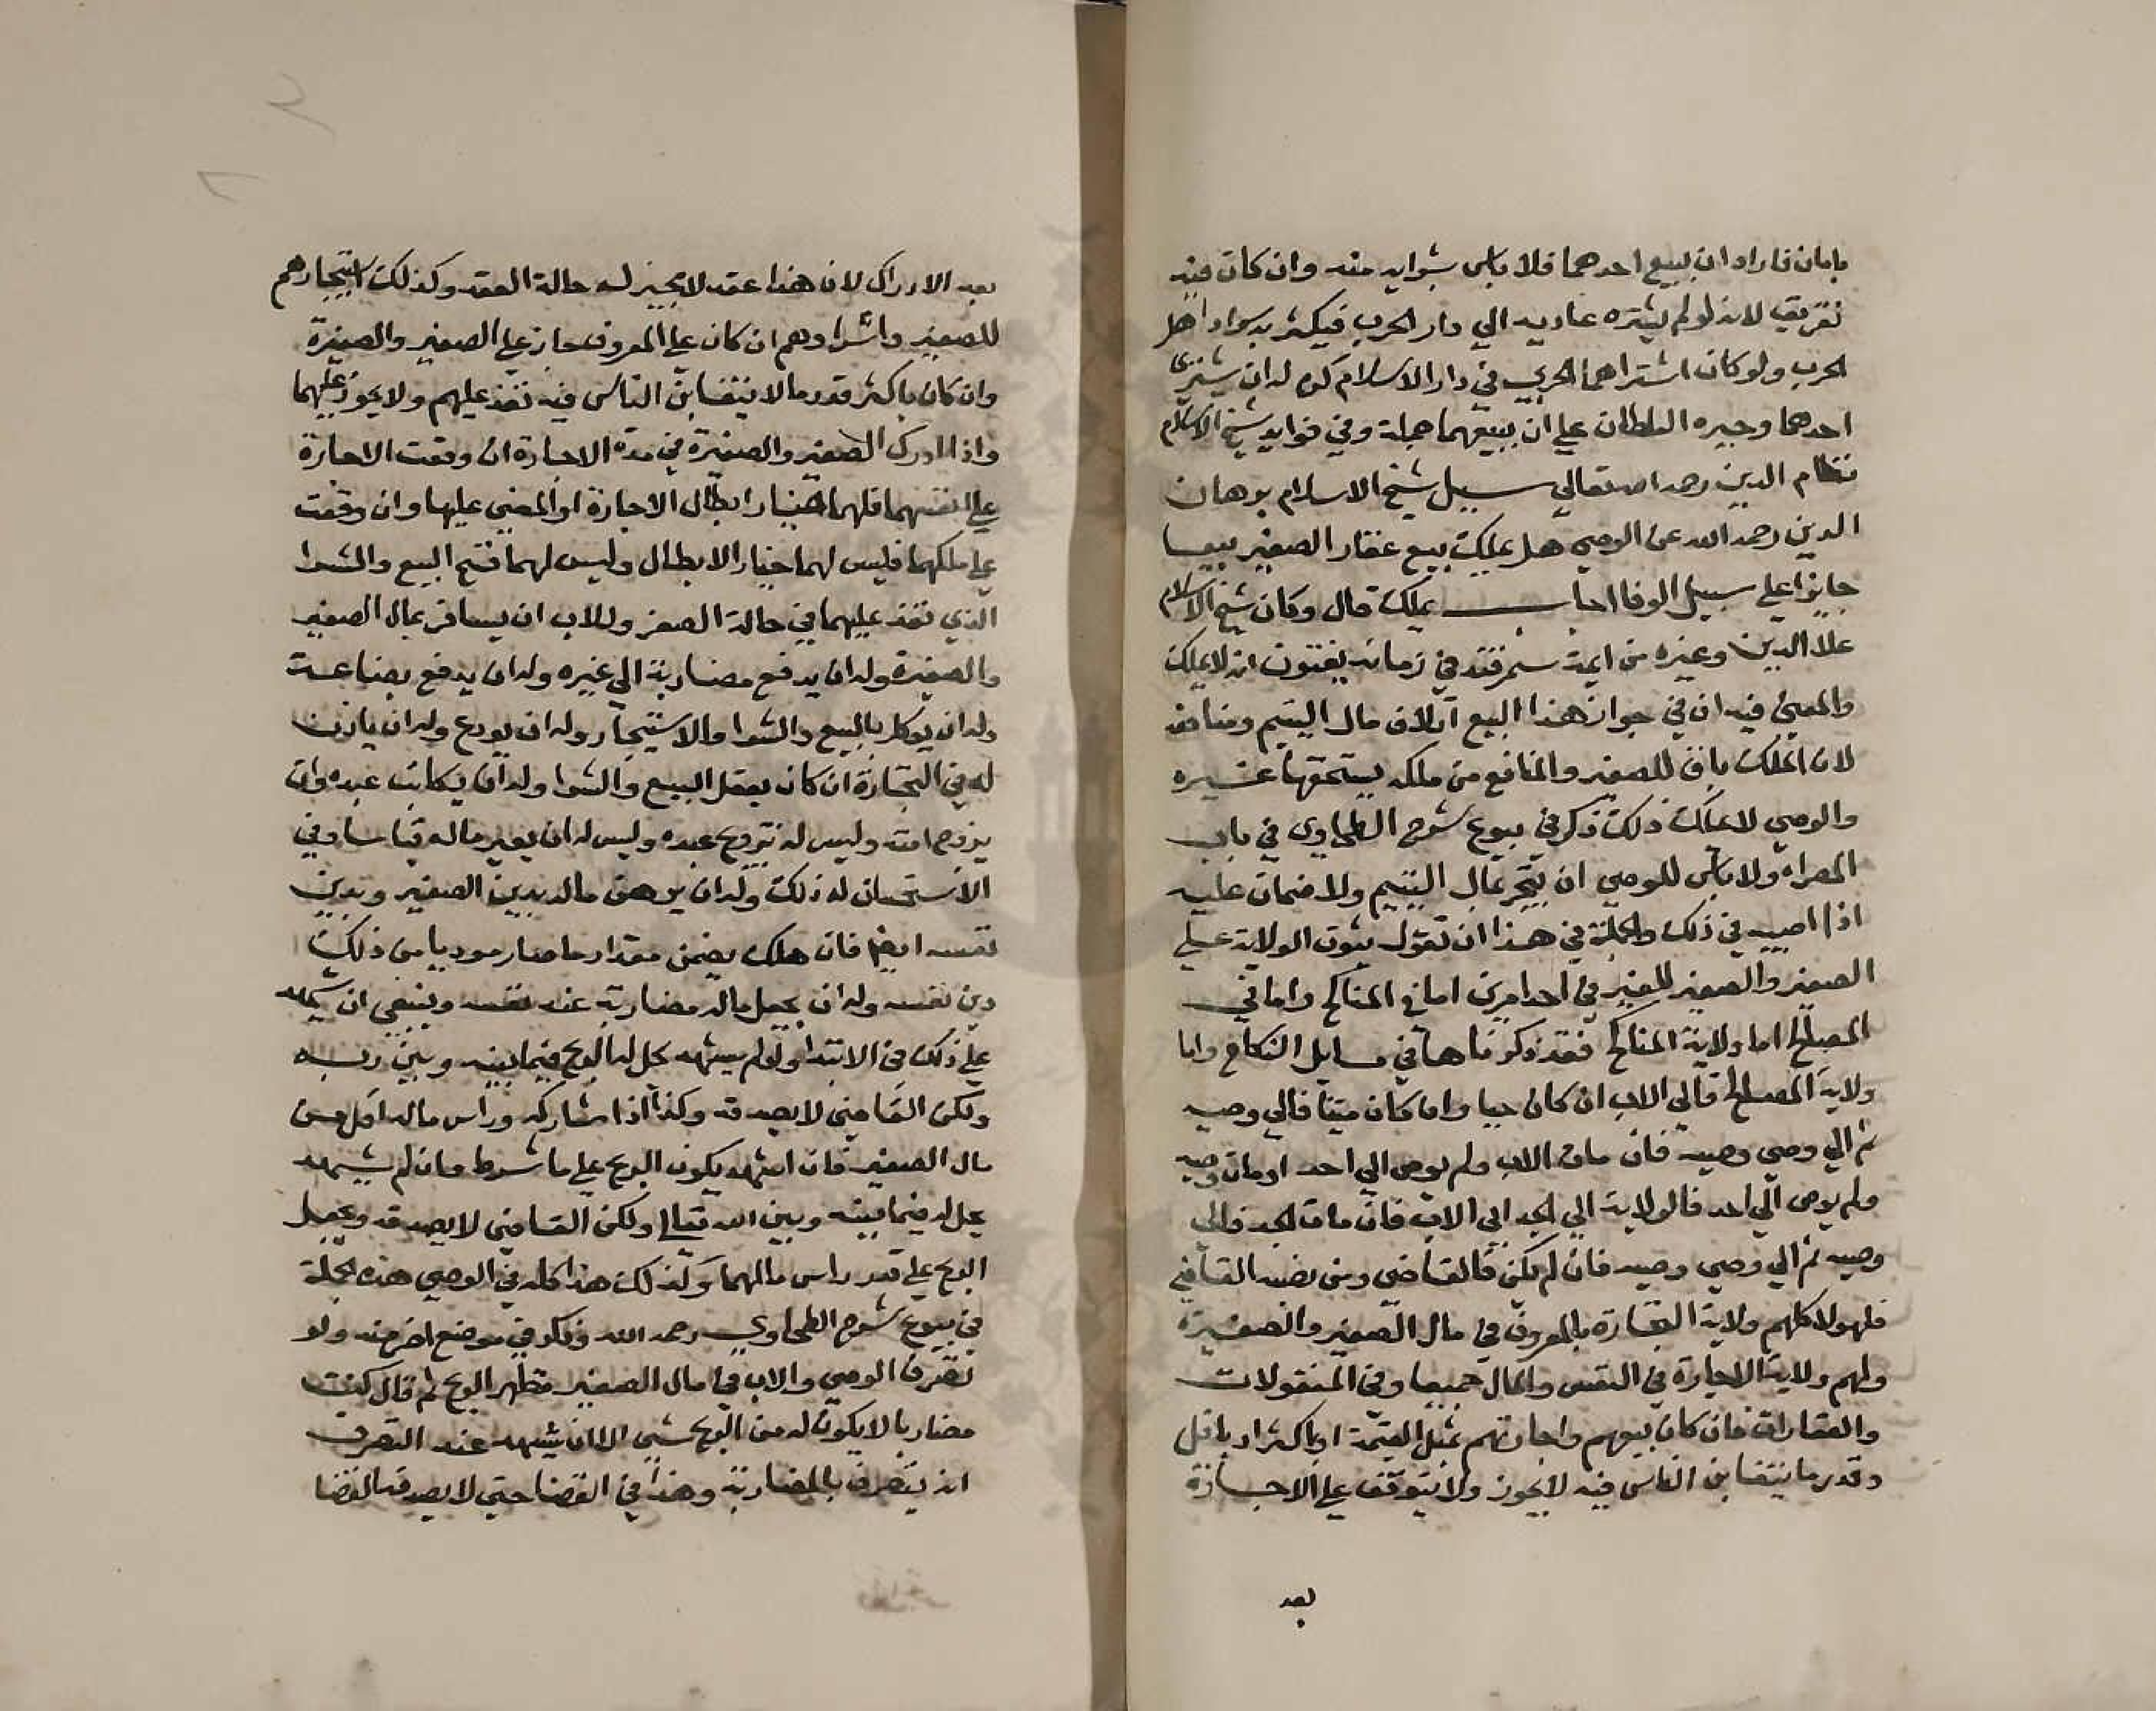 بامان فاراد ان يبيع احدهما فلا باس بشرايه منه وان كان فيه
تفريق لانه لو لم يشتره عاد به الي دار الحرب فيكثر به سواد اهل
الحرب ولو كان اشتراهما الحربي في دار الاسلام كره له ان يشتري
احدهما وجبره السلطان علي ان يبيعهما جملة وفي فوايد شيخ الاسلام
نظام الدين رحمه الله تعالي سيل شيخ الاسلام برهان
الدين رحمه الله عن الوصي هل يملك بيع عقار الصغير بيعا
جايزا علي سبيل الوفا اجاب يملك قال وكان شيخ الاسلام
علا الدين وغيره من ايمة سمرقند في زمانه يفتون انه لا يملك
والمعني فيه ان في جواز هذا البيع اتلاف مال اليتيم ومنافعه
لان الملك باق للصغير والمنافع من ملكه يستحقها غيره
والوصي لا يملك ذلك ذكر في بيوع شرح الطحاوي في باب
المصراه ولا باس للوصي ان يتجر بمال اليتيم ولا ضمان عليه
اذا اصيب في ذلك والجملة في هذا ان تقول ثبوت الولاية علي
الصغير والصغيرة للغير في احد امرين اما في المناكح واما في
المصالح اما ولاية المناكح فقد ذكرناها في مسايل النكاح واما
ولاية المصالح فالي الاب ان كان حيا وان كان ميتا فالي وصيه
ثم الي وصي وصيه فان مات الاب ولم يوص الي احد او مات وصيه
ولم يوص الي احد فالولاية الي الجد ابي الاب فان مات الجد فالي
وصيه ثم الي وصي وصيه فان لم يكن فالقاضي ومن نصبه القاضي
فلهولا كلهم ولاية التجارة بالمعروف في مال الصغير والصغيرة
ولهم ولاية الاجارة في النفس والمال جميعا وفي المنقولات
والعقارات فان كان بيعهم واجارتهم بمثل القيمة او باكثر او باقل
وقدر ما يتغابن الناس فيه لا يجوز ولا يتوقف علي الاجازة
بعد
بعد الادراك لان هذا عقد لا مجيز له حالة العقد وكذلك استيجارهم
للصغير واشراوهم ان كان علي المعروف جاز علي الصغير والصغيرة
وان كان باكثر قدر ما لا يتغابن الناس فيه نفذ عليهم ولا يجوز عليهما
واذا ادرك الصغير والصغيرة في مدة الاجارة ان وقعت الاجارة
علي انفسهما فلهما خيار ابطال الاجارة او المضي عليها وان وقعت
علي ملكهما فليس لهما خيار الابطال وليس لهما فسخ البيع والشرا
الذي نفذ عليهما في حالة الصغر وللاب ان يسافر بمال الصغير
والصغيرة وله ان يدفع مضاربة الي غيره وله ان يدفع بضاعة
وله ان يوكل بالبيع والشرا والاستيجار وله ان يودع وله ان ياذن
له في التجارة ان كان يعقل البيع والشرا وله ان يكاتب عبده وان
يزوج امته وليس له تزويج عبده وليس له ان يعير ماله قياسا وفي
الاستحسان له ذلك وله ان يرهن ماله بدين الصغير وبدين
نفسه ايضا فان هلك يضمن مقدار ما صار موديا من ذلك
دين نفسه وله ان يجعل ماله مضاربة عند نفسه وينبغي ان يشهد
علي ذلك في الابتدا ولو لم يشهد يحل له الربح فيما بينه وبين ربه
ولكن القاضي لا يصدقه وكذا اذا شاركه وراس ماله اقل من
مال الصغير فان اشهد يكون الربح علي ما شرط فان لم يشهد
يحل له فيما بينه وبين الله تعالي ولكن القاضي لا يصدقه ويجعل
الربح علي قدر راس مالهما وكذلك هذا كله في الوصي هذه الجملة
في بيوع شرح الطحاوي رحمه الله وذكر في موضع اخر منه ولو
تصرف الوصي والاب في مال الصغير فظهر الربح ثم قال كنت
مضاربا لا يكون له من الربح شي الا ان يشهد عند التصرف
انه يتصرف بالمضاربة وهذا في القضا حتي لا يصدقه القضا